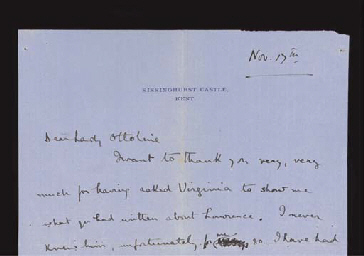 Nov. 17th
SISSINGHURST CASTLE,
KENT.
Dear Lady Ottoline
I want to thank you very, very
much for having asked Virginia to show me
what you had written about Lawrence. I never
knew him, unfortunately, so I have had